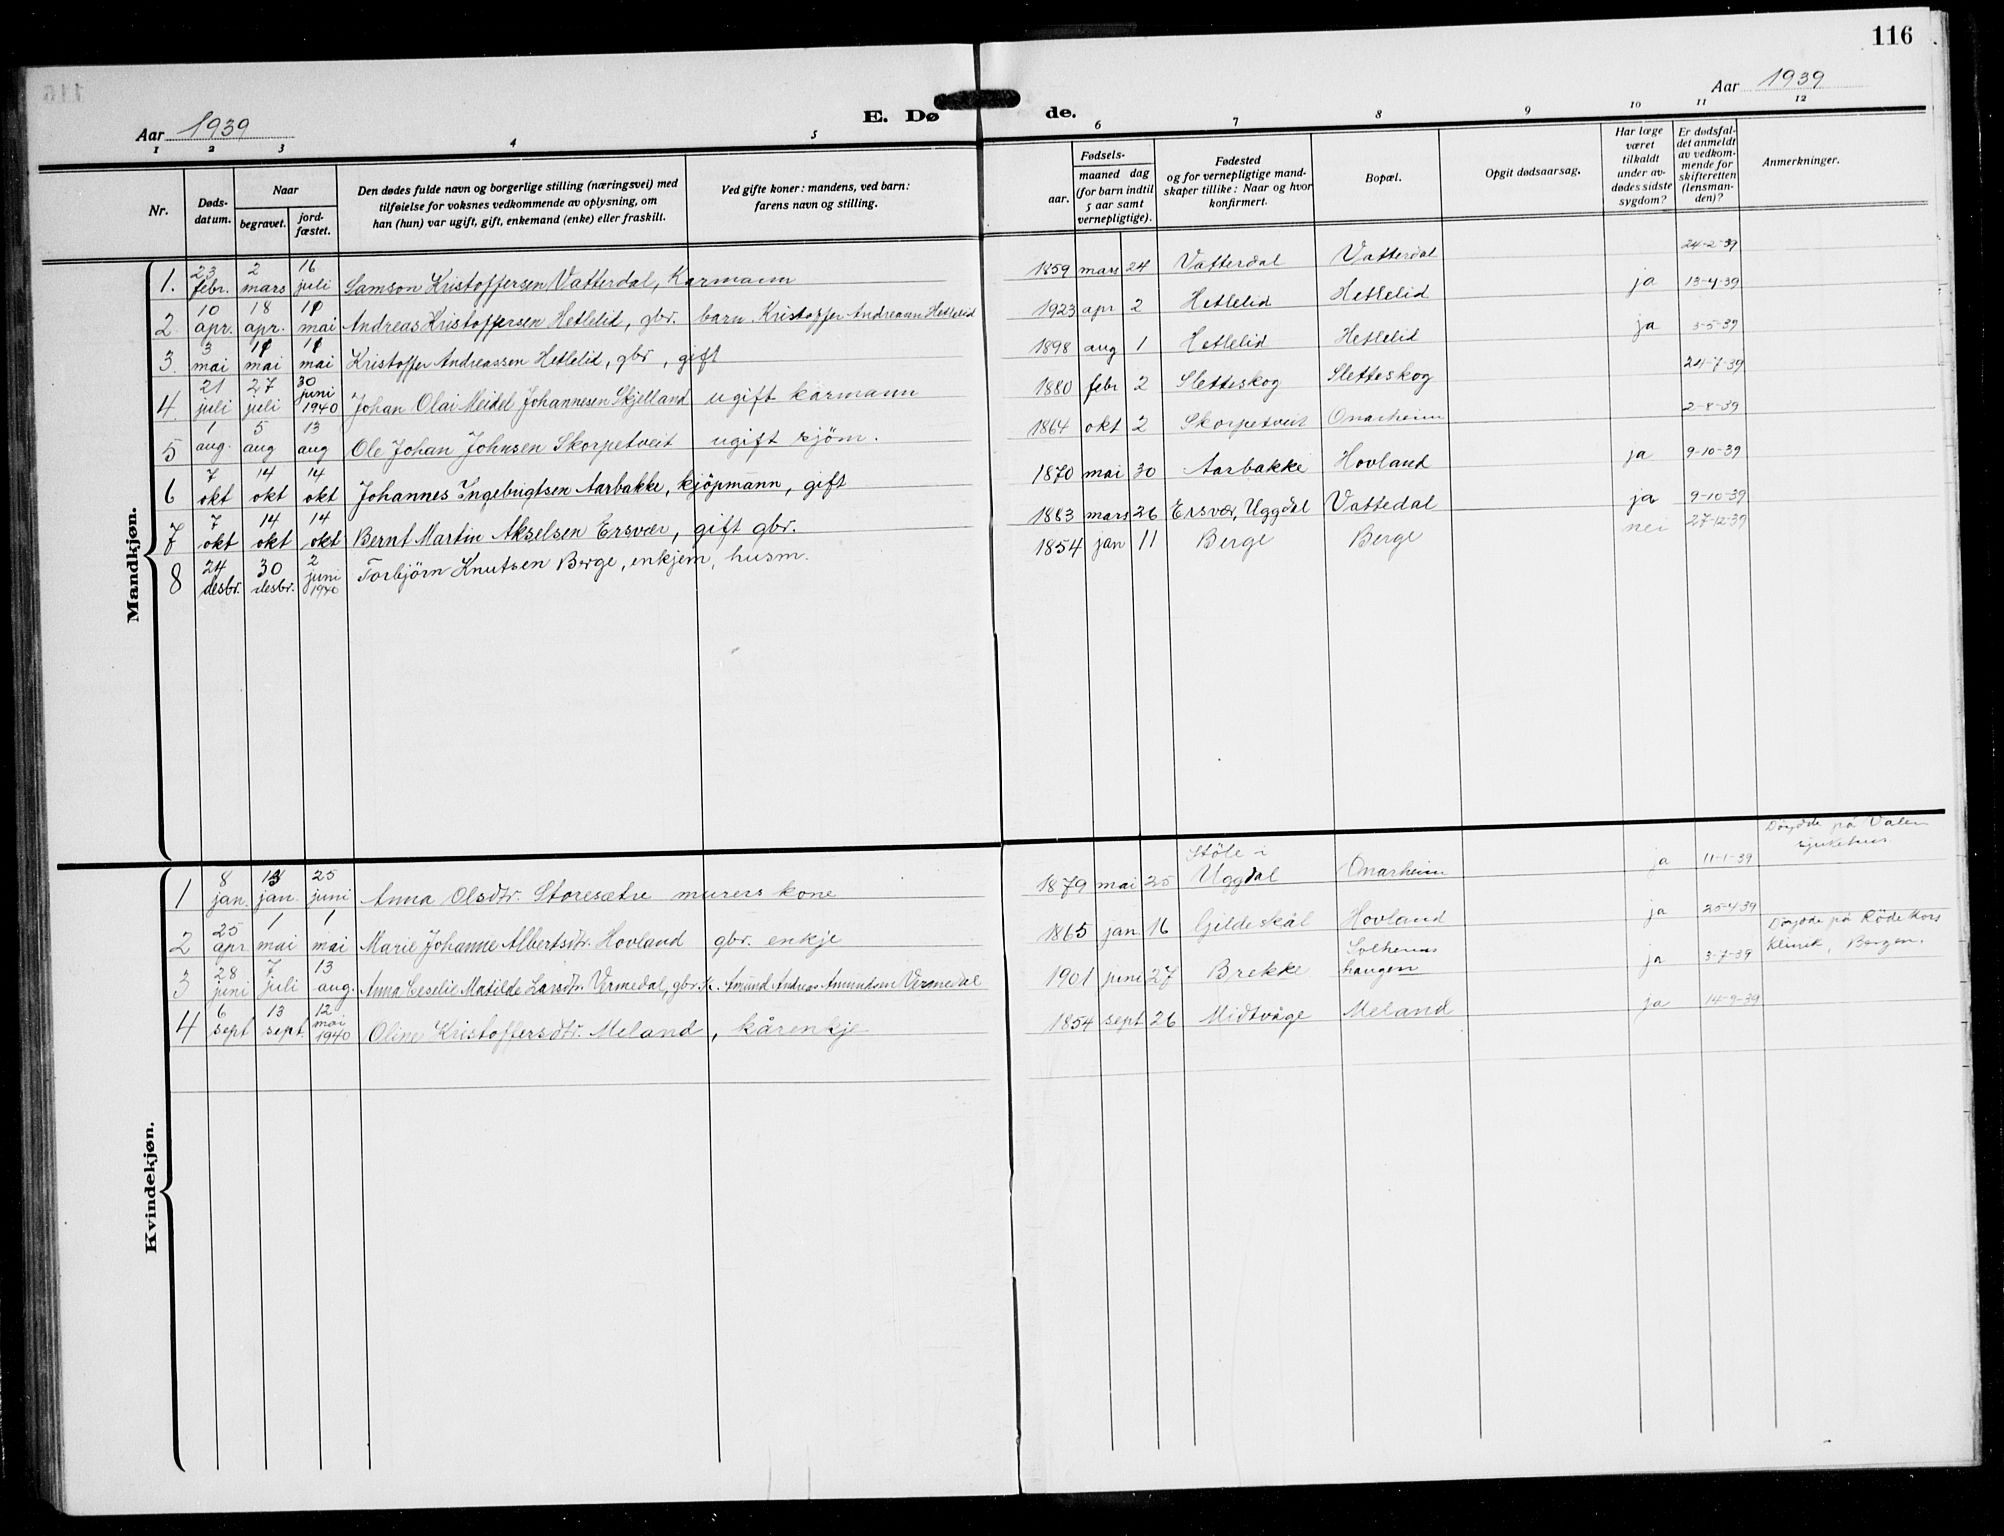 116
Aar 1939
Aar 1939
E. Dø de.
1 2 3 4 5 6 7 8 9 10 11 12
Nr.
Døds-
datum.
Naar
begravet.
jord-
fæstet.
Den dødes fulde navn og borgerlige stilling (næringsvei) med
tilføielse for voksnes vedkommende av oplysning, om
han (hun) var ugift, gift, enkemand (enke) eller fraskilt.
Ved gifte koner: mandens, ved barn:
farens navn og stilling.
Fødsels-
aar.
maaned dag
(for barn indtil
5 aar samt
vernepligtige).
Fødested
og for vernepligtige mand-
skaper tillike: Naar og hvor
konfirmert.
Bopæl.
Opgit dødsaarsag.
Har læge
været
tilkaldt
under av-
dødes sidste
sygdom?
Er dødsfal-
det anmeldt
av vedkom-
mende for
skifteretten
(lensman-
den)?
Anmerkninger.
Mandkjøn.
1. 23 febr. 2 mars 16 juli Samson Kristoffersen Vatterdal, Karmann 1859 mars 24 Vatterdal Vatterdal 24-2-39
2 10 apr. 18 apr. 11 mai Andreas Kristoffersen Hetlelid, gbr. barn. Kristoffer Andreassen Hetlelid 1923 apr 2 Hetlelid Hetlelid ja 13-4-39
3. 3 mai 11 mai 11 mai Kristoffer Andreassen Hetlelid, gbr, gift 1898 aug 1 Hetlelid Hetlelid ja 3-5-39
4. 21 juli 27 juli 30 juni 1940 Johan Olai Meidel Johannesen Skjelland ugift karmann 1880 febr 2 Sletteskog Sletteskog 24-7-39
5 1 aug. 5 aug 13 aug Ole Johan Johnsen Skorpetveit ugift sjöm. 1864 okt 2 Skorpetveit Onarheim 2-8-39
6 7 okt 14 okt 14 okt Johannes Ingebrigtsen Aarbakke, kjöpmann, gift 1870 mai 30 Aarbakke Hovland ja 9-10-39
7 7 okt 14 okt 14 okt Bernt Martin Akselsen Ersvær, gift gbr. 1883 mars 26 Ersvær, Uggdal Vattedal ja 9-10-39
8 24 desbr. 30 desbr. 2 juni 1940 Torbjörn Knutsen Berge, enkjem, husm. 1854 jan 11 Berge Berge nei 27-12-39
Kvindekjøn.
1 8 jan. 13 jan. 25 juni Anna Olsdtr. Storesætre murers kone 1879 mai 25 Stöle i Uggdal Onarheim ja 11-1-39 Döydde på Valen sjukehus
2 25 apr 1 mai 1 mai Marie Johanne Albertsdtr. Hovland gbr. enkje 1865 jan 16 Gildeskål Hovland ja 25-4-39
3 28 juni 7 juli 13 aug. Anna Ceselie Matilde Larsdtr. Vermedal, gbr.k. Amund Andreas Amundsen Vermedal 1901 juni 27 Brekke Solheims haugen ja 3-7-39 Döydde på Röde Kors Klinik, Bergen.
4 6 sept 13 sept. 12 mai 1940 Oline Kristoffersdtr. Meland, kårenkje 1854 sept 26 Midtvåge Meland ja 14-9-39